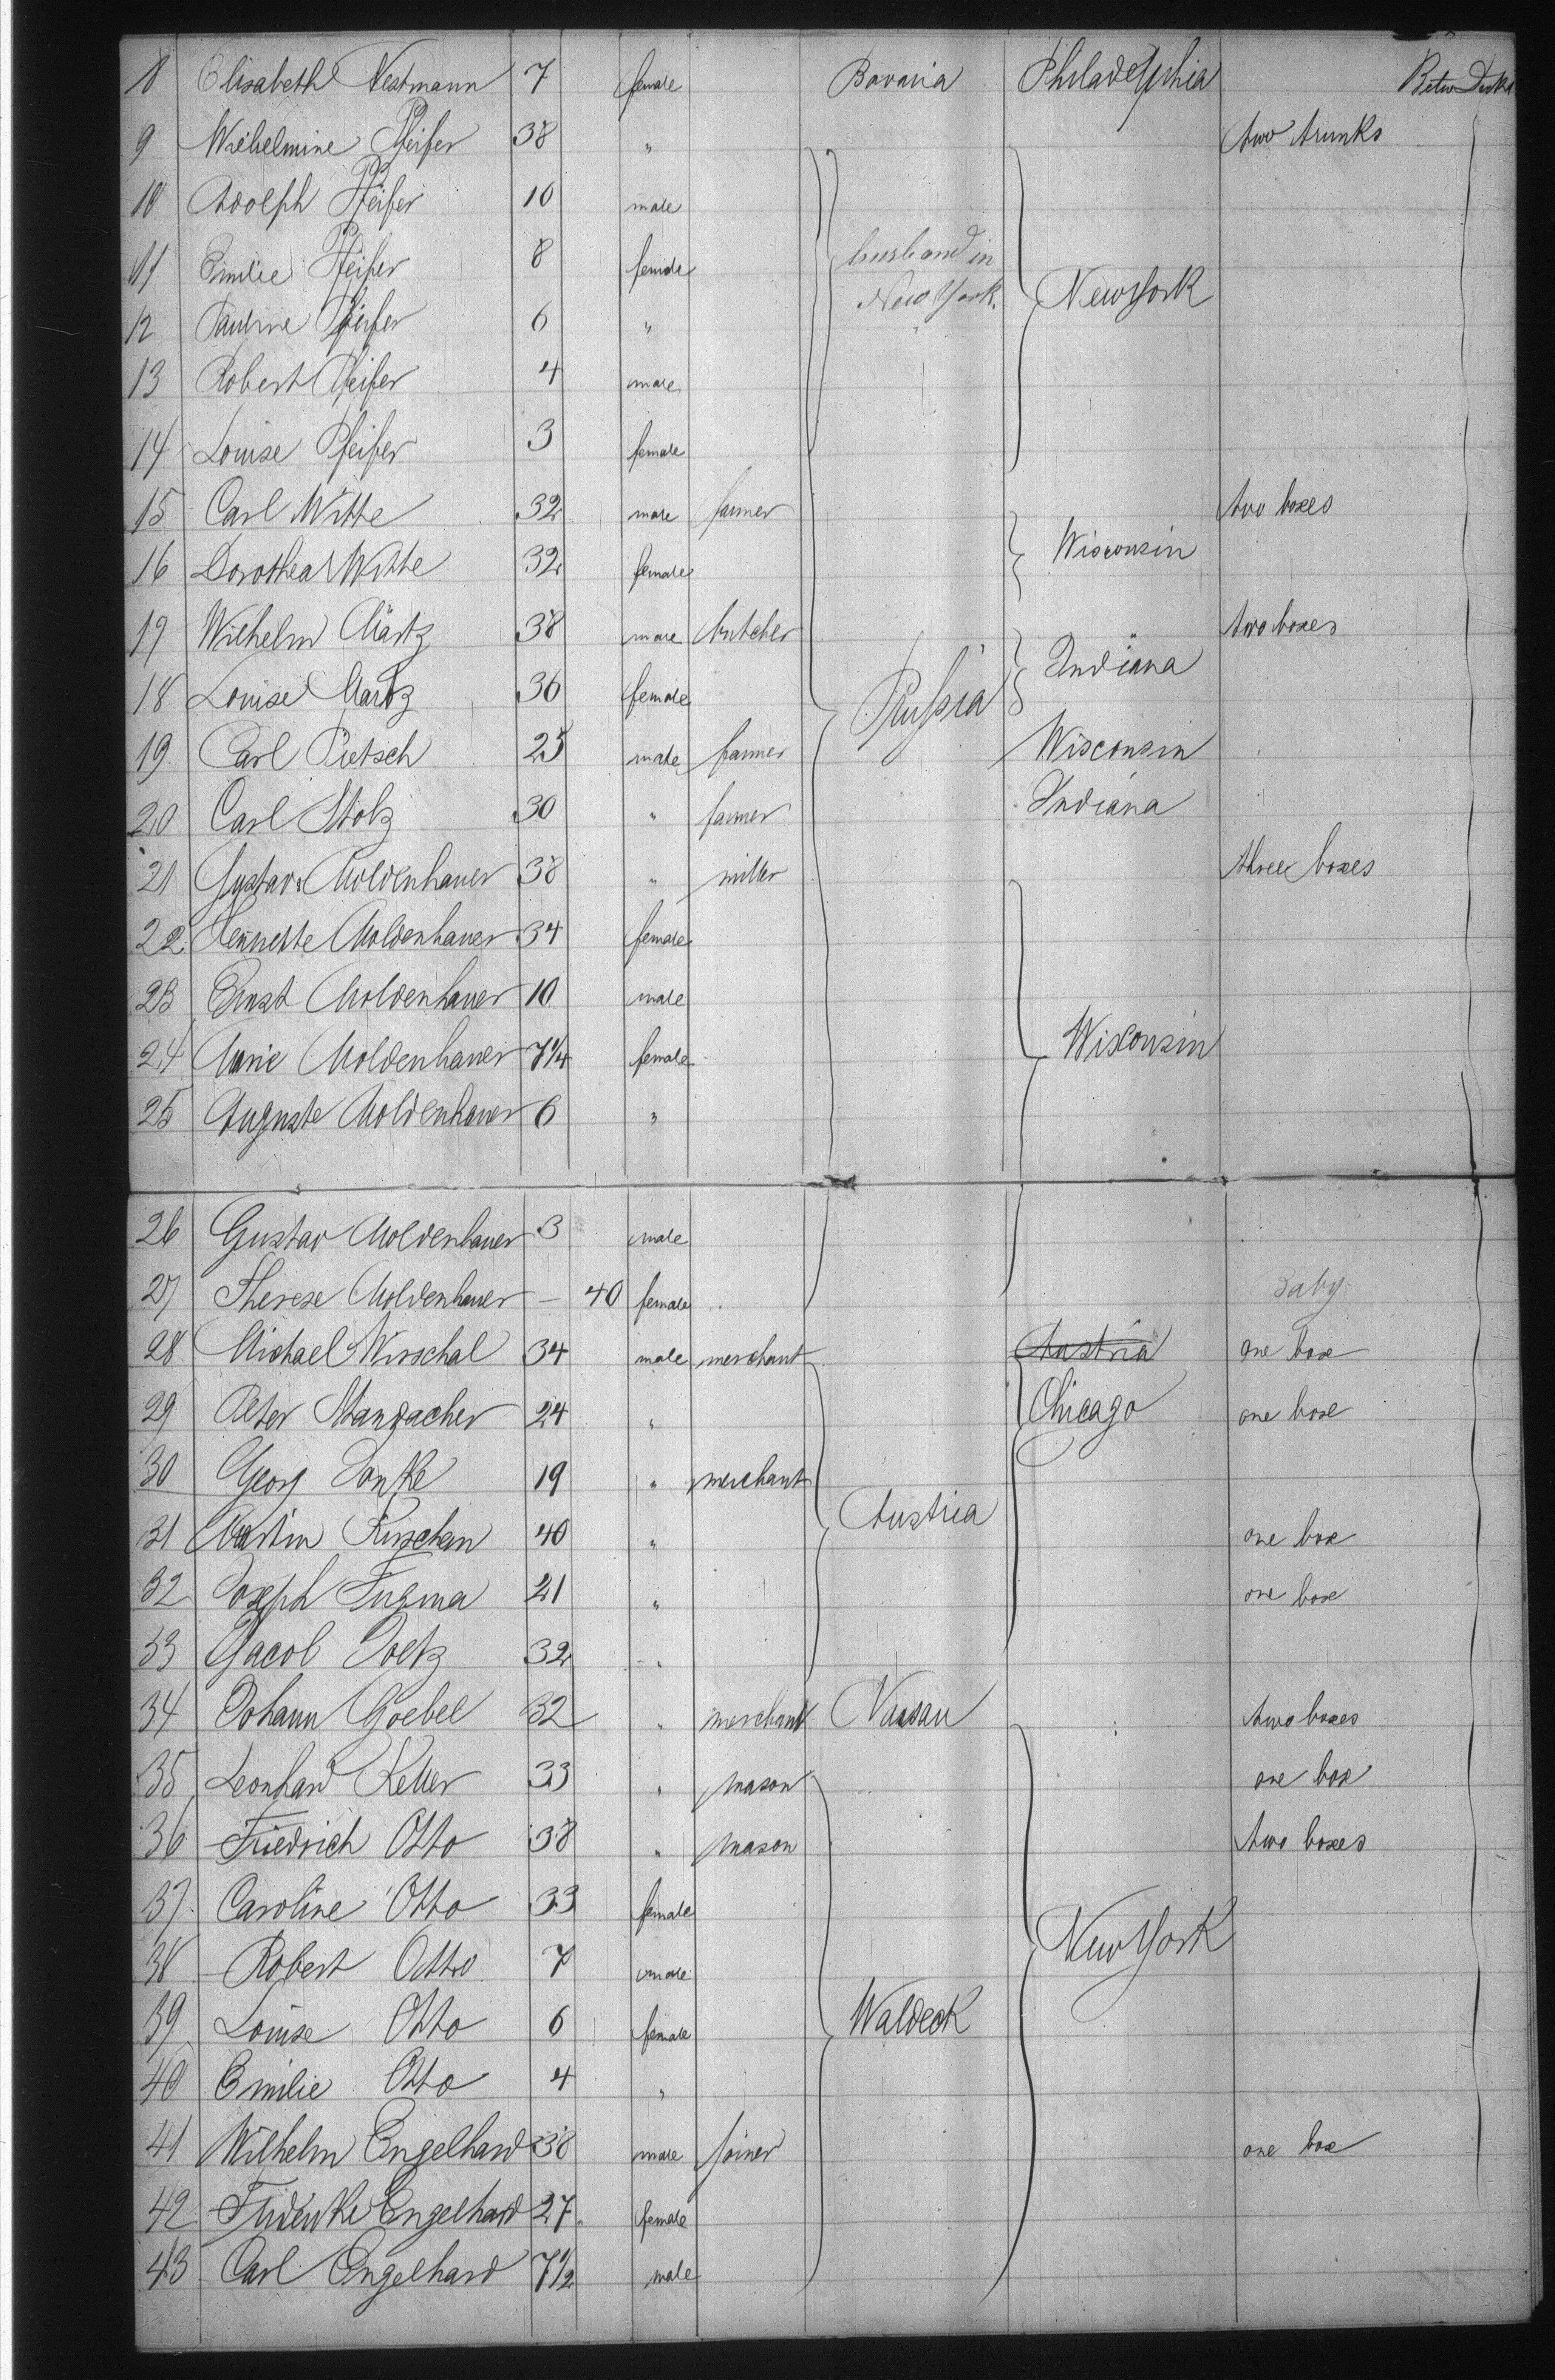 8 Elisabeth Nestmann 7 female Bavaria Philadelphia Betw Decks
9 Wilhelmine Pfeifer 38 " two trunks
10 Adolph Pfeifer 10 male
11 Emilie Pfeifer 8 female husband in
12 Pauline Pfeifer 6 " New York. New York
13 Robert Pfeifer 4 male
14 Louise Pfeifer 3 female
15 Carl Witte 32 male farmer two boxes
16 Dorothea Witte 32 female Wisconsin
17 Wilhelm Märtz 38 male butcher two boxes
18 Louise Märtz 36 female Prussia Indiana
19 Carl Pietsch 25 male farmer Wisconsin
20 Carl Stolz 30 " farmer Indiana
21 Gustav Moldenhauer 38 " miller three boxes
22 Hennette Moldenhauer 34 female
23 Ernst Moldenhauer 10 male
24 Marie Moldenhauer 7 1/4 female Wisconsin
25 Auguste Moldenhauer 6 "
26 Gustav Moldenhauer 3 male
27 Therese Moldenhauer – 40 female Baby
28 Michael Wirschal 34 male merchant Austria one box
29 Peter 24 " Chicago one box
30 Georg 19 " merchant
31 Martin 40 " Austria one box
32 Joseph 21 " one box
33 Jacob 32 "
34 Johann Goebel 32 " merchant Nassau two boxes
35 Leonhard Keller 33 " mason one box
36 Friedrich Otto 38 " mason two boxes
37 Caroline Otto 33 female
38 Robert Otto 7 male New York
39 Louise Otto 6 female Waldeck
40 Emilie Otto 4 "
41 Wilhelm Engelhard 38 male joiner one box
42 Engelhard 27 female
43 Carl Engelhard 7 1/2 male